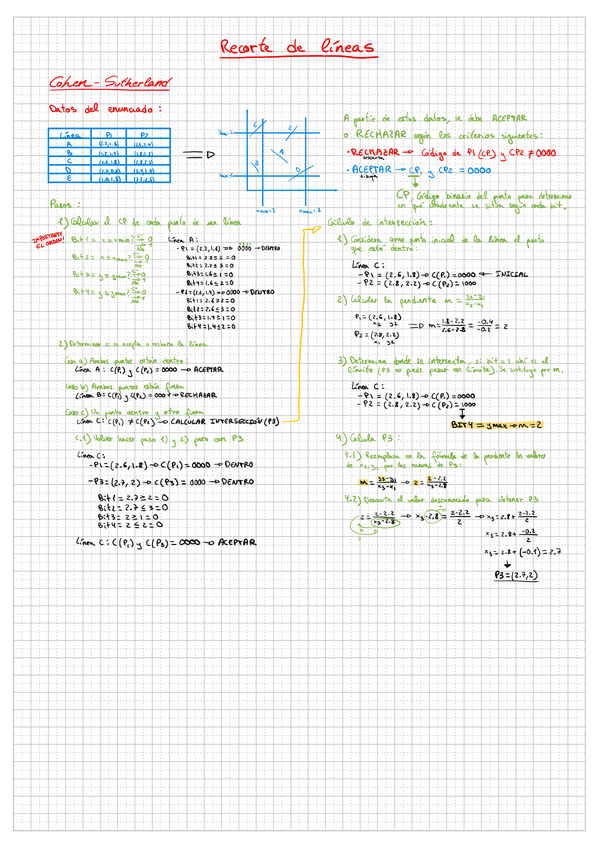 Recorte de líneas
Cohen - Sutherland
Datos del enunciado :
Línea P1 P2
A
B
C
D
E
A partir de estos datos, se debe ACEPTAR
o RECHAZAR según los criterios siguientes:
• RECHAZAR → Código de P1 (CP1) y CP2 ≠ 0000
• ACEPTAR → CP1 y CP2 = 0000
CP, Código binario del punto para determinar
en qué cuadrante se sitúa según cada bit.
Pasos :
1) Calcular el CP de cada punto de una línea
IMPORTANTE
EL ORDEN!
Línea A:
- P1 = (2.2, 1.6) → 0000 → DENTRO
Bit1 = 2.2 ≥ 2 = 0
Bit2 = 2.2 ≤ 3 = 0
Bit3 = 1.6 ≥ 1 = 0
Bit4 = 1.6 ≤ 2 = 0
→ 0000 → DENTRO
Bit3 = 1.4 ≥ 1 = 0
Bit4 = 1.4 ≤ 2 = 0
2) Determinar si se acepta o rechaza la línea
Caso a) Ambos puntos están dentro:
Línea A: C(P1) y C(P2) = 0000 → ACEPTAR
Caso b) Ambos puntos están fuera
Línea B: C(P1) y C(P2) = → RECHAZAR
Caso c) Un punto dentro y otro fuera
Línea C: C(P1) ≠ C(P2) → CALCULAR INTERSECCIÓN (P3)
C.1) Volver hacer paso 1) y 2) pero con P3
Línea C:
- P1 = (2.6, 1.8) → C(P1) = 0000 → DENTRO
- P3 = (2.7, 2) → C(P3) = 0000 → DENTRO
Bit1 = 2.7 ≥ 2 = 0
Bit2 = 2.7 ≤ 3 = 0
Bit3 = 2 ≥ 1 = 0
Bit4 = 2 ≤ 2 = 0
Línea C: C(P1) y C(P3) = 0000 → ACEPTAR
Cálculo de intersección :
1) Considera como punto inicial de la línea el punto
que esté dentro:
Línea C:
- P1 = (2.6, 1.8) → C(P1) = 0000 ← INICIAL
- P2 = (2.8, 2.2) → C(P2) = 1000
2) Calcular la pendiente m = y2-y1 / x2-x1
P1 = (2.6, 1.8)
x2 y2
P2 = (2.8, 2.2)
x1 y1
⇒ m = 1.8-2.2 / 2.6-2.8 = -0.4 / -0.2 = 2
3) Determina donde se intersecta, si bit = 1 ahí es el
límite (P3 no puede pasar ese límite). Se sustituye por m.
Línea C:
- P1 = (2.6, 1.8) → C(P1) = 0000
- P2 = (2.8, 2.2) → C(P2) = 1000
BIT4 = ymax → m = 2
4) Calcula P3 :
4.1) Reemplaza en la fórmula de la pendiente los valores
de x2, y2 por los menos de P3:
m = y3-y1 / x3-x1 → 2 = 2-2.2 / x3-2.8
4.2) Descarta el valor desconocido para obtener P3
2 = 2-2.2 / x3-2.8 → x3-2.8 = 2-2.2 / 2 → x3 = 2.8 + 2-2.2 / 2
x3 = 2.8 + -0.2 / 2
x3 = 2.8 + (-0.1) = 2.7
P3 = (2.7, 2)